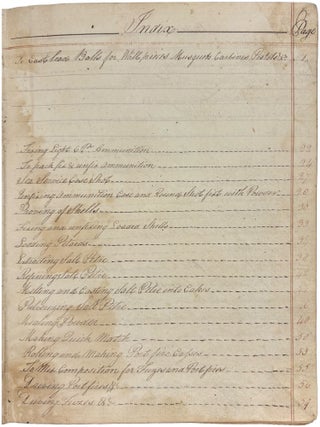 Index
Page
To Cast Lead Balls for Wall pieces Musquets Carbines Pistols &c 1
Fixing Light 6 Pr Ammunition 22
To pack fix'd & unfix'd Ammunition 24
Sea Service Case Shot
Unfixing Ammunition Case and Round Shot fix'd with Powder 30
Proving of Shells
Fixing and unfixing Loaded Shells
Loading Petards
Extracting Salt Petre
Refining Salt Petre
Melting and Casting Salt Petre into Cakes
Pulverizing Salt Petre
Making Powder 48
Making Quick Match 50
Rolling and Making Port fire Cases 53
To Mix Composition for Fuzes and Portfires 55
Driving Portfires &c 56
Driving Fuzes &c 57